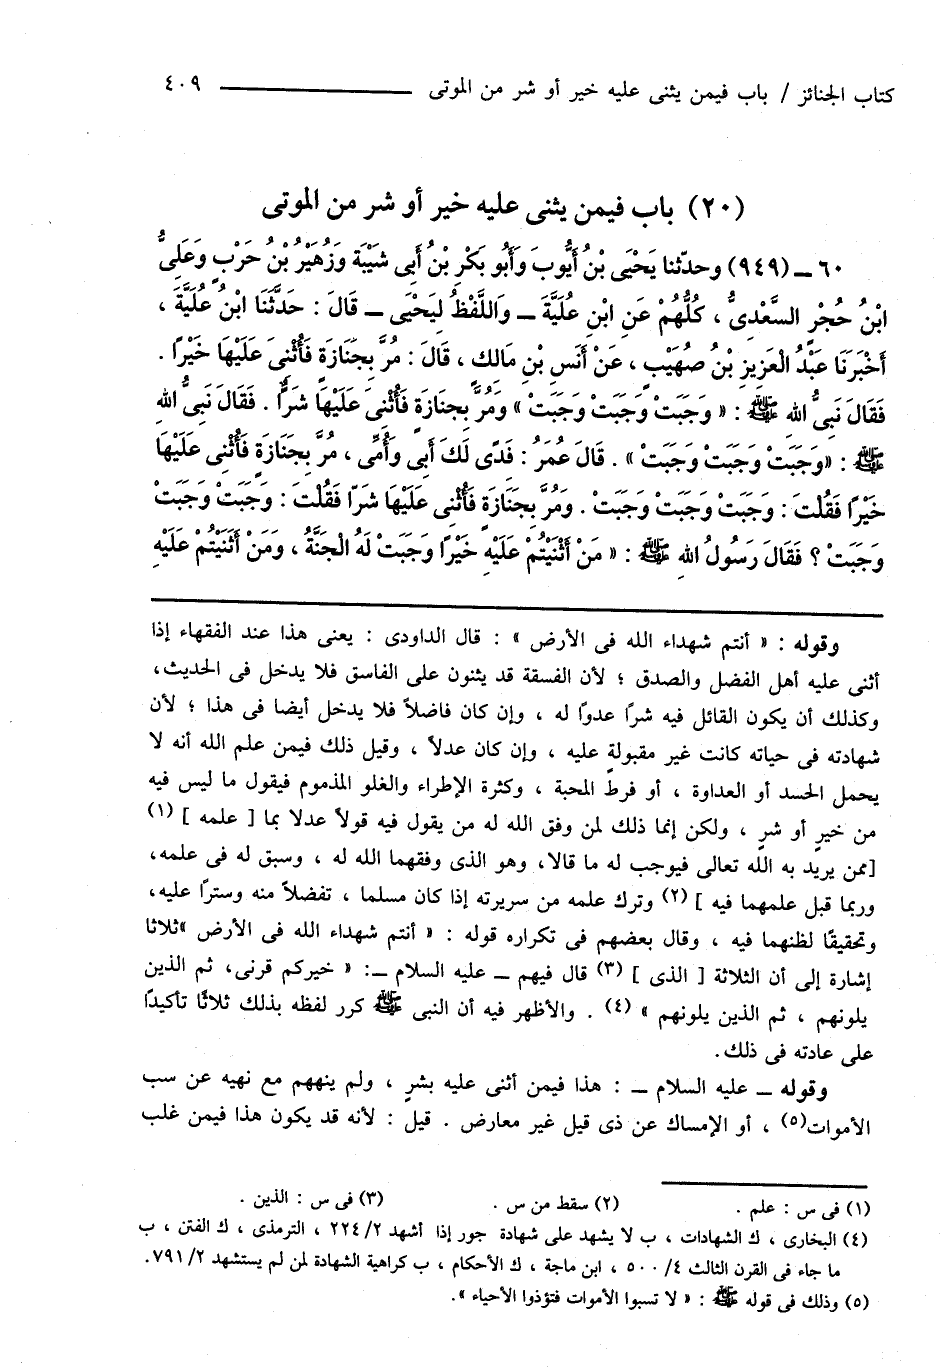 كتاب الجنائز / باب فيمن يثنى عليه خير أو شر من الموتى ــــــــــــــــ ٤٠٩
(٢٠) باب فيمن يثنى عليه خير أو شر من الموتى
٦٠ ــ (٩٤٩) وحدّثنا يَحْيَى بْنُ أَيُّوبَ وَأَبُو بَكْرِ بْنُ أَبِى شَيْبَةَ وَزُهَيْرُ بْنُ حَرْبٍ وَعَلِىُّ
ابْنُ حُجْرٍ السَّعْدِىُّ ، كُلُّهُمْ عَنِ ابْنِ عُلَيَّةَ ــ وَاللَّفْظُ لِيَحْيَى ــ قَالَ : حَدَّثَنَا ابْنُ عُلَيَّةَ ،
أَخْبَرَنَا عَبْدُ الْعَزِيزِ بْنُ صُهَيْبٍ ، عَنْ أَنَسِ بْنِ مَالِكٍ ، قَالَ : مُرَّ بِجَنَازَةٍ فَأُثْنِىَ عَلَيْهَا خَيْرًا .
فَقَالَ نَبِىُّ اللهِ ﷺ : « وَجَبَتْ وَجَبَتْ وَجَبَتْ » وَمُرَّ بِجِنَازَةٍ فَأُثْنِىَ عَلَيْهَا شَرًّا . فَقَالَ نَبِىُّ اللهِ
ﷺ : «وَجَبَتْ وَجَبَتْ وَجَبَتْ » . قَالَ عُمَرُ : فَدًى لَكَ أَبِى وَأُمِّى ، مُرَّ بِجَنَازَةٍ فَأُثْنِى عَلَيْهَا
خَيْرًا فَقُلْتَ : وَجَبَتْ وَجَبَتْ وَجَبَتْ . وَمُرَّ بِجِنَازَةٍ فَأُثْنِىَ عَلَيْهَا شَرّا فَقُلْتَ : وَجَبَتْ وَجَبَتْ
وَجَبَتْ ؟ فَقَالَ رَسُولُ اللهِ ﷺ : « مَنْ أَثْنَيْتُمْ عَلَيْهِ خَيْرًا وَجَبَتْ لَهُ الْجَنَّةُ ، وَمَنْ أَثْنَيْتُمْ عَلَيْهِ
وقوله : « أنتم شهداء الله فى الأرض » : قال الداودى : يعنى هذا عند الفقهاء إذا
أثنى عليه أهل الفضل والصدق ؛ لأن الفسقة قد يثنون على الفاسق فلا يدخل فى الحديث،
وكذلك أن يكون القائل فيه شرًا عدوًا له ، وإن كان فاضلاً فلا يدخل أيضا فى هذا ؛ لأن
شهادته فى حياته كانت غير مقبولةٍ عليه ، وإن كان عدلاً ، وقيل ذلك فيمن علم الله أنه لا
يحمل الحسد أو العداوة ، أو فرط المحبة ، وكثرة الإطراء والغلو المذموم فيقول ما ليس فيه
من خيرٍ أو شرٍ ، ولكن إنما ذلك لمن وفق الله له من يقول فيه قولاً عدلا بما [ علمه ] (١)
[ممن يريد به الله تعالى فيوجب له ما قالا، وهو الذى وفقهما الله له ، وسبق له فى علمه،
وربما قبل علمهما فيه ] (٢) وترك علمه من سريرته إذا كان مسلما ، تفضلاً منه وسترًا عليه،
وتحقيقًا لظنهما فيه ، وقال بعضهم فى تكراره قوله : « أنتم شهداء الله فى الأرض »ثلاثا
إشارة إلى أن الثلاثة [ الذى ] (٣) قال فيهم ــ عليه السلام ــ: « خيركم قرنى، ثم الذين
يلونهم ، ثم الذين يلونهم » (٤) . والأظهر فيه أن النبى ﷺ كرر لفظه بذلك ثلاثًا تأكيدًا
على عادته فى ذلك.
وقوله ــ عليه السلام ــ : هذا فيمن أثنى عليه بشرٍ ، ولم ينههم مع نهيه عن سب
الأموات(٥) ، أو الإمساك عن ذى قيل غير معارض . قيل : لأنه قد يكون هذا فيمن غلب
(١) فى س : علم . (٢) سقط من س . (٣) فى س : الذين .
(٤) البخارى ، ك الشهادات ، ب لا يشهد على شهادة جور إذا أشهد ٢/ ٢٢٤ ، الترمذى ، ك الفتن ، ب
ما جاء فى القرن الثالث ٤/ ٥٠٠ ، ابن ماجة ، ك الأحكام ، ب كراهية الشهادة لمن لم يستشهد ٢/ ٧٩١.
(٥) وذلك فى قوله ﷺ : « لا تسبوا الأموات فتؤذوا الأحياء ».